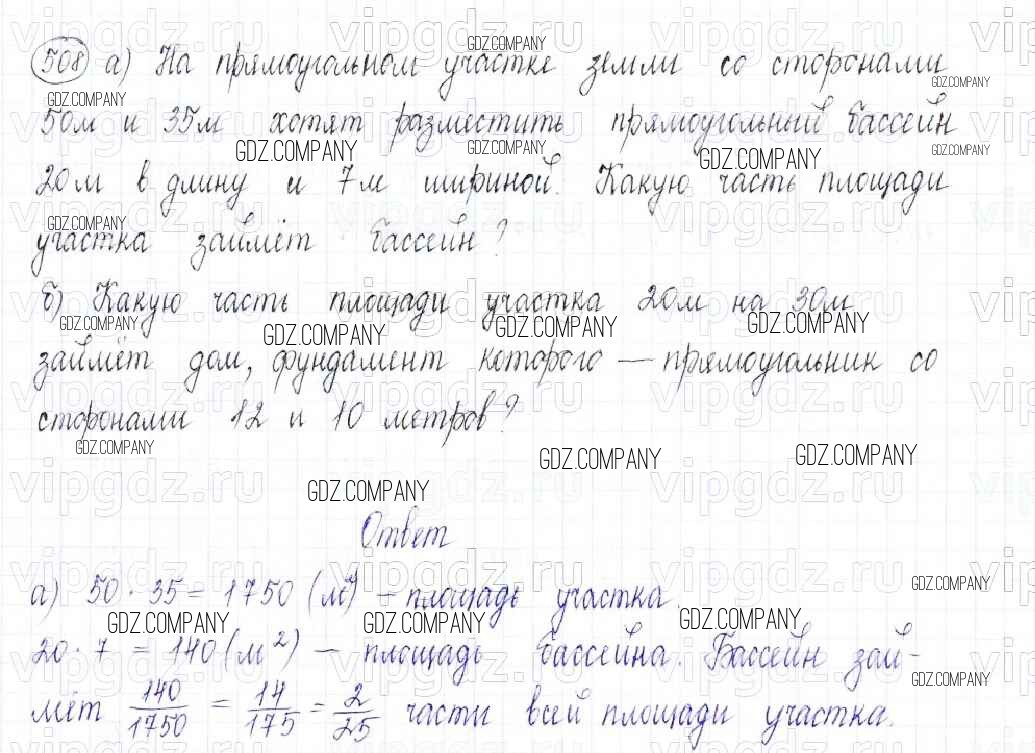 508 а) На прямоугольном участке земли со сторонами
50м и 35м хотят разместить прямоугольный бассейн
20м в длину и 7м шириной. Какую часть площади
участка займёт бассейн?
б) Какую часть площади участка 20м на 30м
займёт дом, фундамент которого — прямоугольник со
сторонами 12 и 10 метров?
Ответ
а) 50 · 35 = 1750 (м²) – площадь участка.
20 · 7 = 140 (м²) – площадь бассейна. Бассейн зай-
мёт 140/1750 = 14/175 = 2/25 части всей площади участка.
GDZ.COMPANY
vipgdz.ru